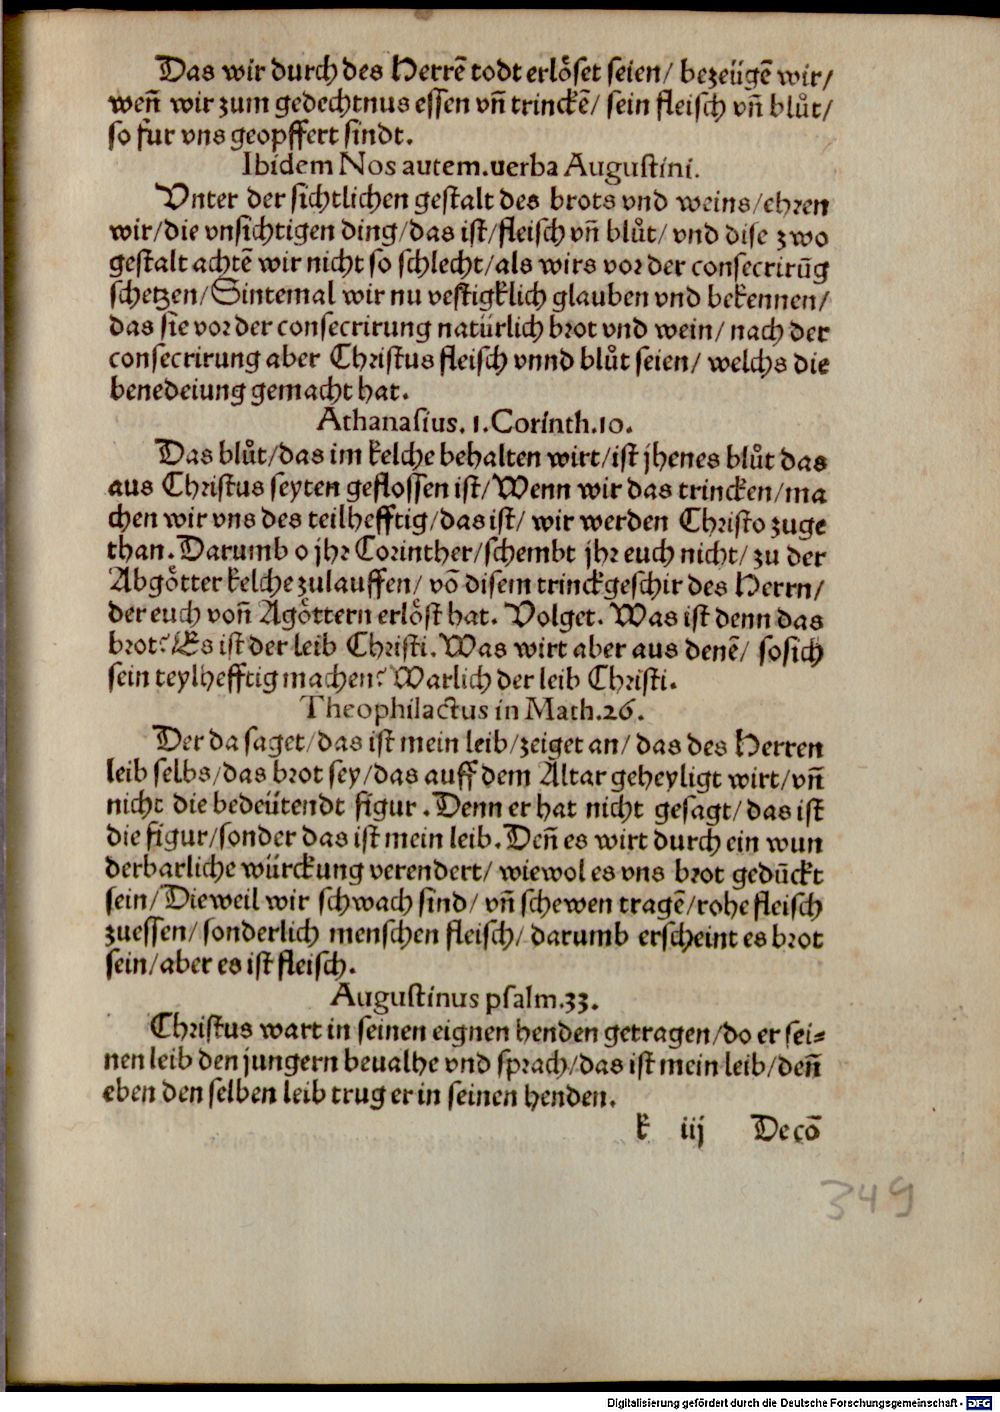 Das wir durch des Herrē todt erlöset seien/ bezeügē wir/
weñ wir zum gedechtnus essen vñ trinckē/ sein fleisch vñ blůt/
so fur vns geopffert sindt.
Ibidem Nos autem.uerba Augustini.
Vnter der sichtlichen gestalt des brots vnd weins/ehren
wir/die vnsichtigen ding/das ist/fleisch vñ blůt/ vnd dise zwo
gestalt achtē wir nicht so schlecht/als wirs vor der consecrirūg
schetzen/Sintemal wir nu vestigklich glauben vnd bekennen/
das sie vor der consecrirung natürlich brot vnd wein/ nach der
consecrirung aber Christus fleisch vnnd blůt seien/ welchs die
benedeiung gemacht hat.
Athanasius. 1.Corinth.10.
Das blůt/das im kelche behalten wirt/ist jhenes blůt das
aus Christus seyten geflossen ist/Wenn wir das trincken/ma
chen wir vns des teilhefftig/das ist/ wir werden Christo zuge
than.Darumb o jhr Corinther/schembt jhr euch nicht/ zu der
Abgötter kelche zulauffen/ vō disem trinckgeschir des Herrn/
der euch voñ Agöttern erlöst hat. Volget. Was ist denn das
brot? Es ist der leib Christi.Was wirt aber aus denē/ so sich
sein teylhefftig machen? Warlich der leib Christi.
Theophilactus in Math.26.
Der da saget/das ist mein leib/zeiget an/ das des Herren
leib selbs/das brot sey/das auff dem Altar geheyligt wirt/vñ
nicht die bedeütendt figur.Denn er hat nicht gesagt/das ist
die figur/sonder das ist mein leib.Deñ es wirt durch ein wun
derbarliche würckung verendert/ wiewol es vns brot gedūckt
sein/Dieweil wir schwach sind/ vñ schewen tragē/rohe fleisch
zuessen/sonderlich menschen fleisch/ darumb erscheint es brot
sein/aber es ist fleisch.
Augustinus psalm.33.
Christus wart in seinen eignen henden getragen/do er sei=
nen leib den jungern beualhe vnd sprach/das ist mein leib/deñ
eben den selben leib trug er in seinen henden.
k iij Decō
349
Digitalisierung gefördert durch die Deutsche Forschungsgemeinschaft - DFG